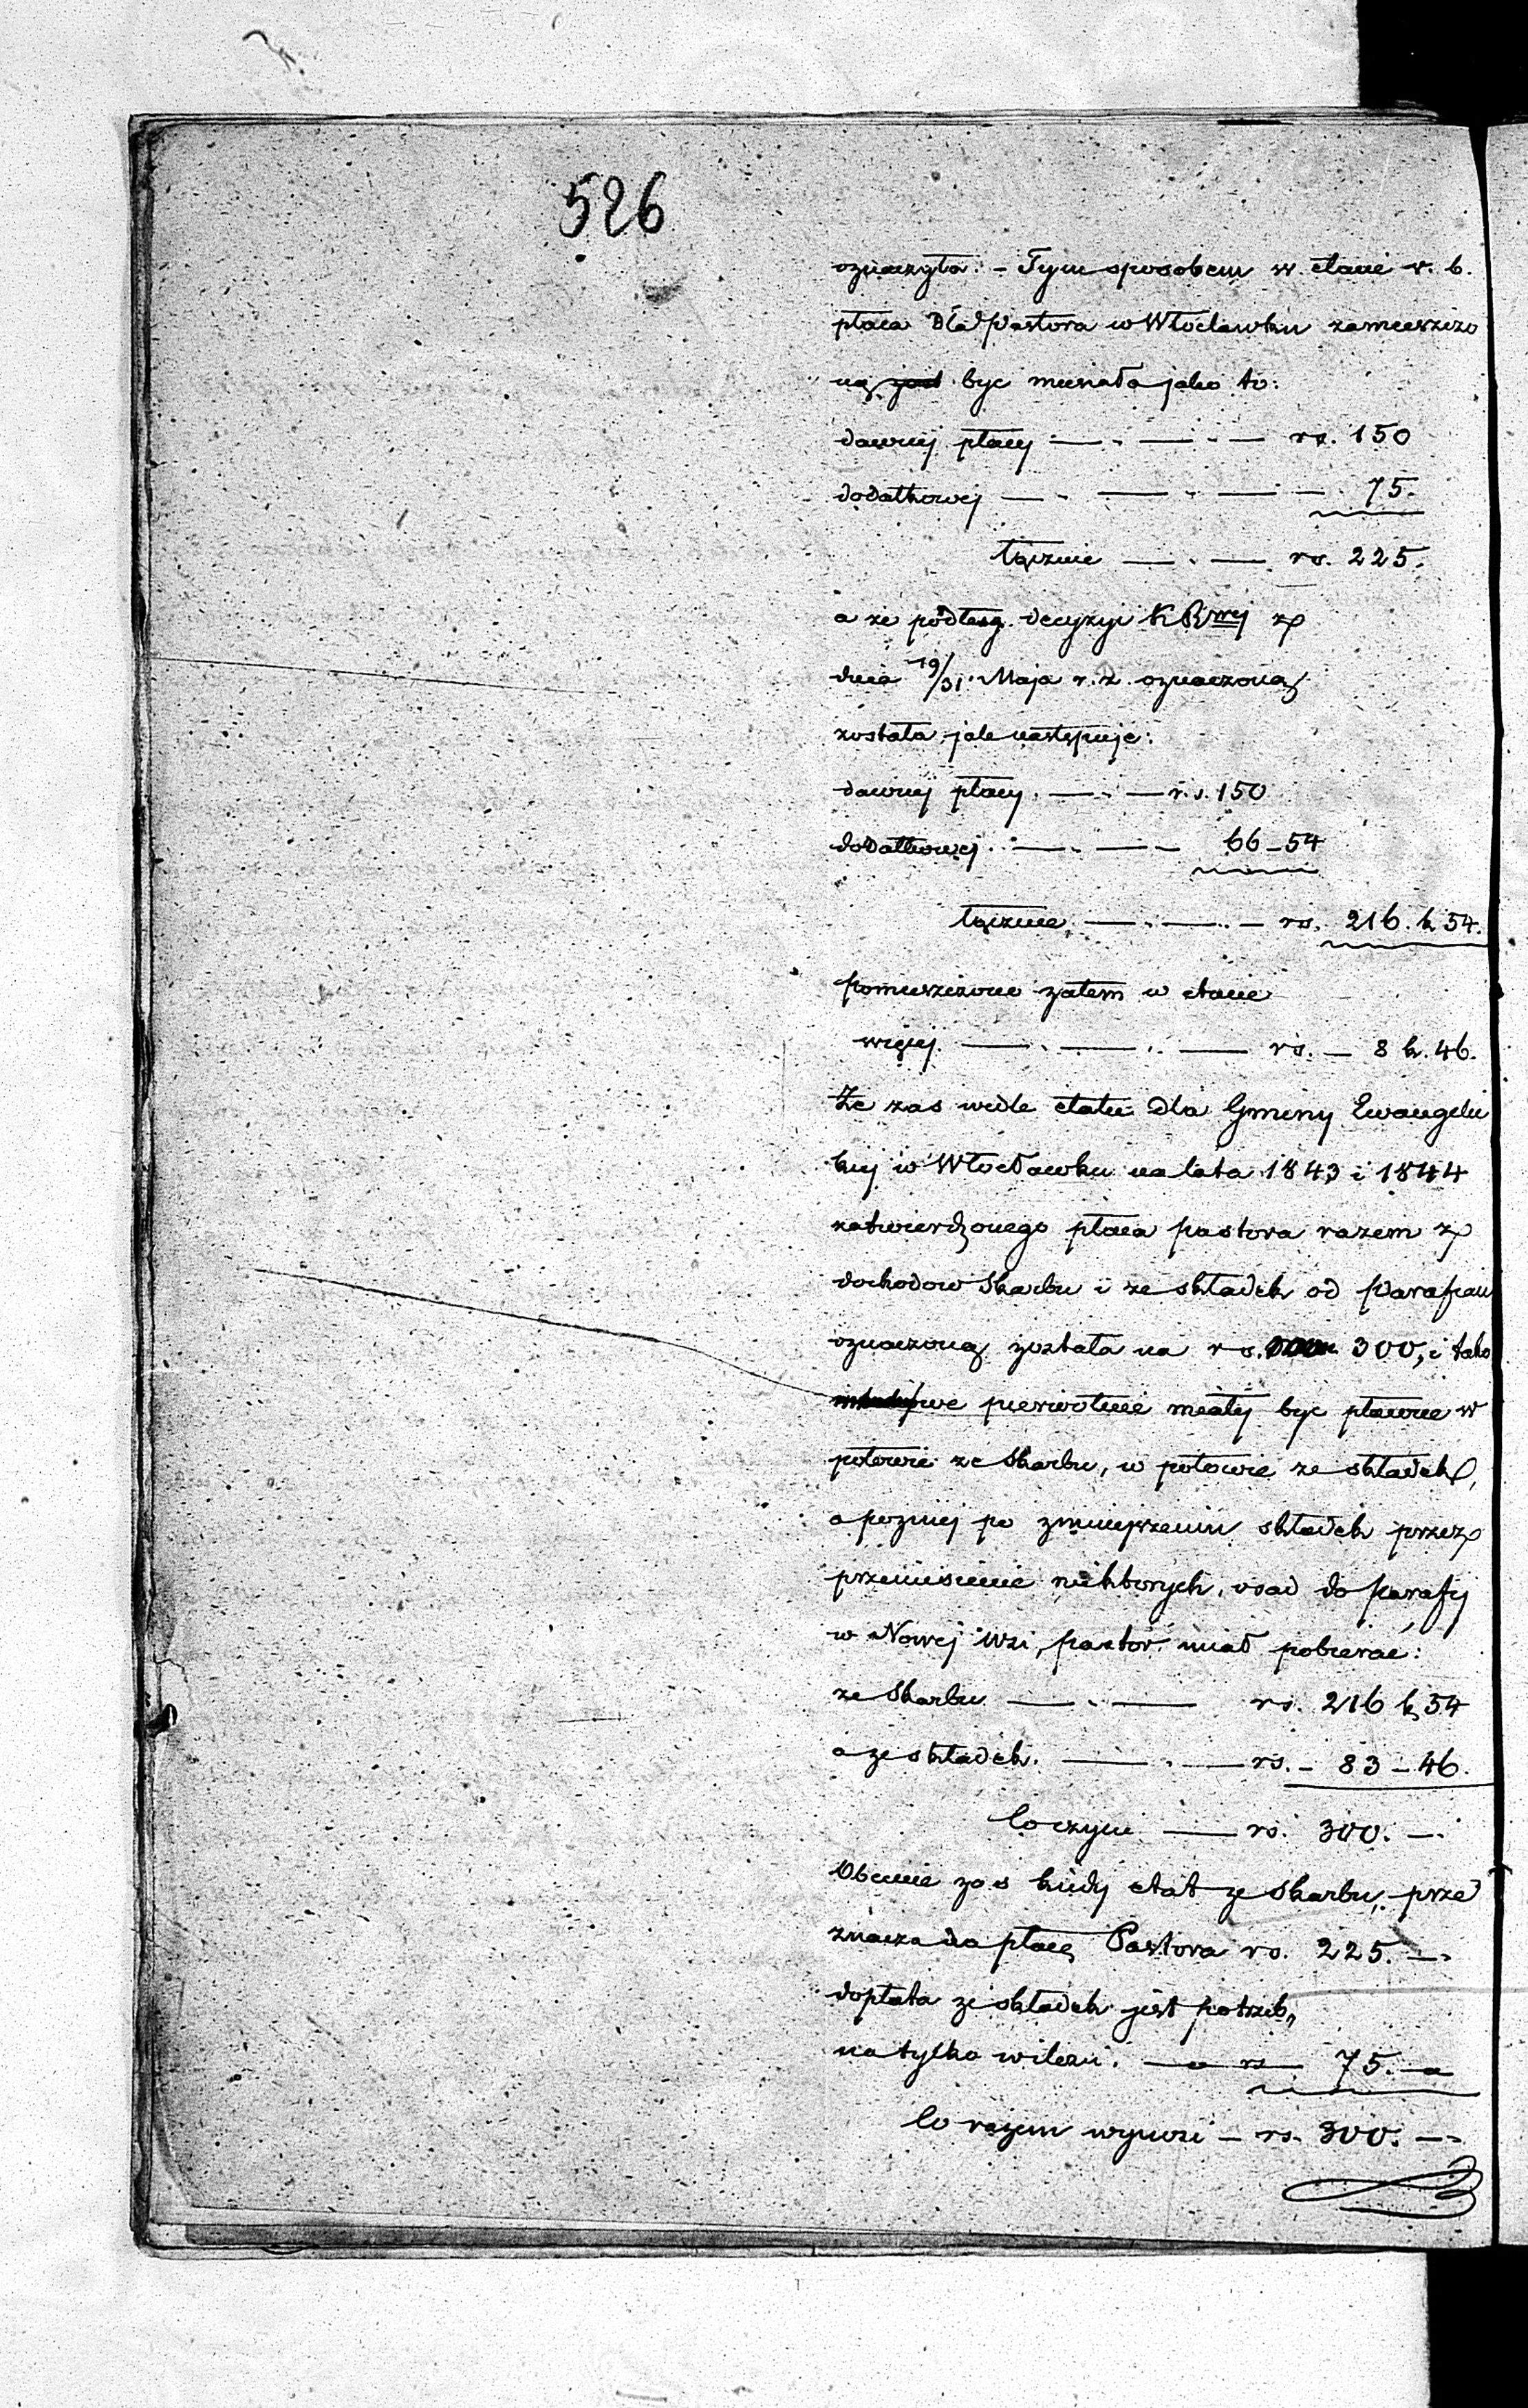 526
oznaczyła. – Tym sposobem w etacie r. b.
płaca dla Pastora w Włocławku zamieszczo
ną być musiała jako to:
dawnej płacy — - — - — rs. 150
dodatkowej — - — - — - — 75.
łącznie — - — rs. 225.
a że podług decyzyi KRwej z
dnia 19/31 Maja r. z. oznaczoną
została jak następuje:
dawnej płacy — - — rs. 150
dodatkowej — - — - 66 – 54
łącznie — - — - — rs. 216. k 54.
pomieszczono zatem w etacie
więcej — - — - — rs. – 8 k. 46.
Że zas wedle etatu dla Gminy Ewangelic
kiej w Włocławku na lata 1843 i 1844
zatwierdzonego płaca pastora razem z
dochodow Skarbu i ze składek od Parafian
oznaczoną została na rs. 300, i tako
we pierwotnie miały byc płacone w
połowie ze Skarbu, w połowie ze składek,
a pozniej po zmniejszeniu składek przez
przeniesienie niektorych osad do parafij
w Nowej Wsi, pastor miał pobierać:
ze Skarbu — - — rs. 216 k 54
a ze składek. — - — rs. – 83 – 46.
Co czyni — rs. 300. —
Obecnie zas kiedy etat ze Skarbu prze
znacza na płacę Pastora rs. 225. —
dopłata ze składek jest potrzeb„
na tylko w ilosci. — rs — 75. —
Co razem wynosi – rs. 300. —